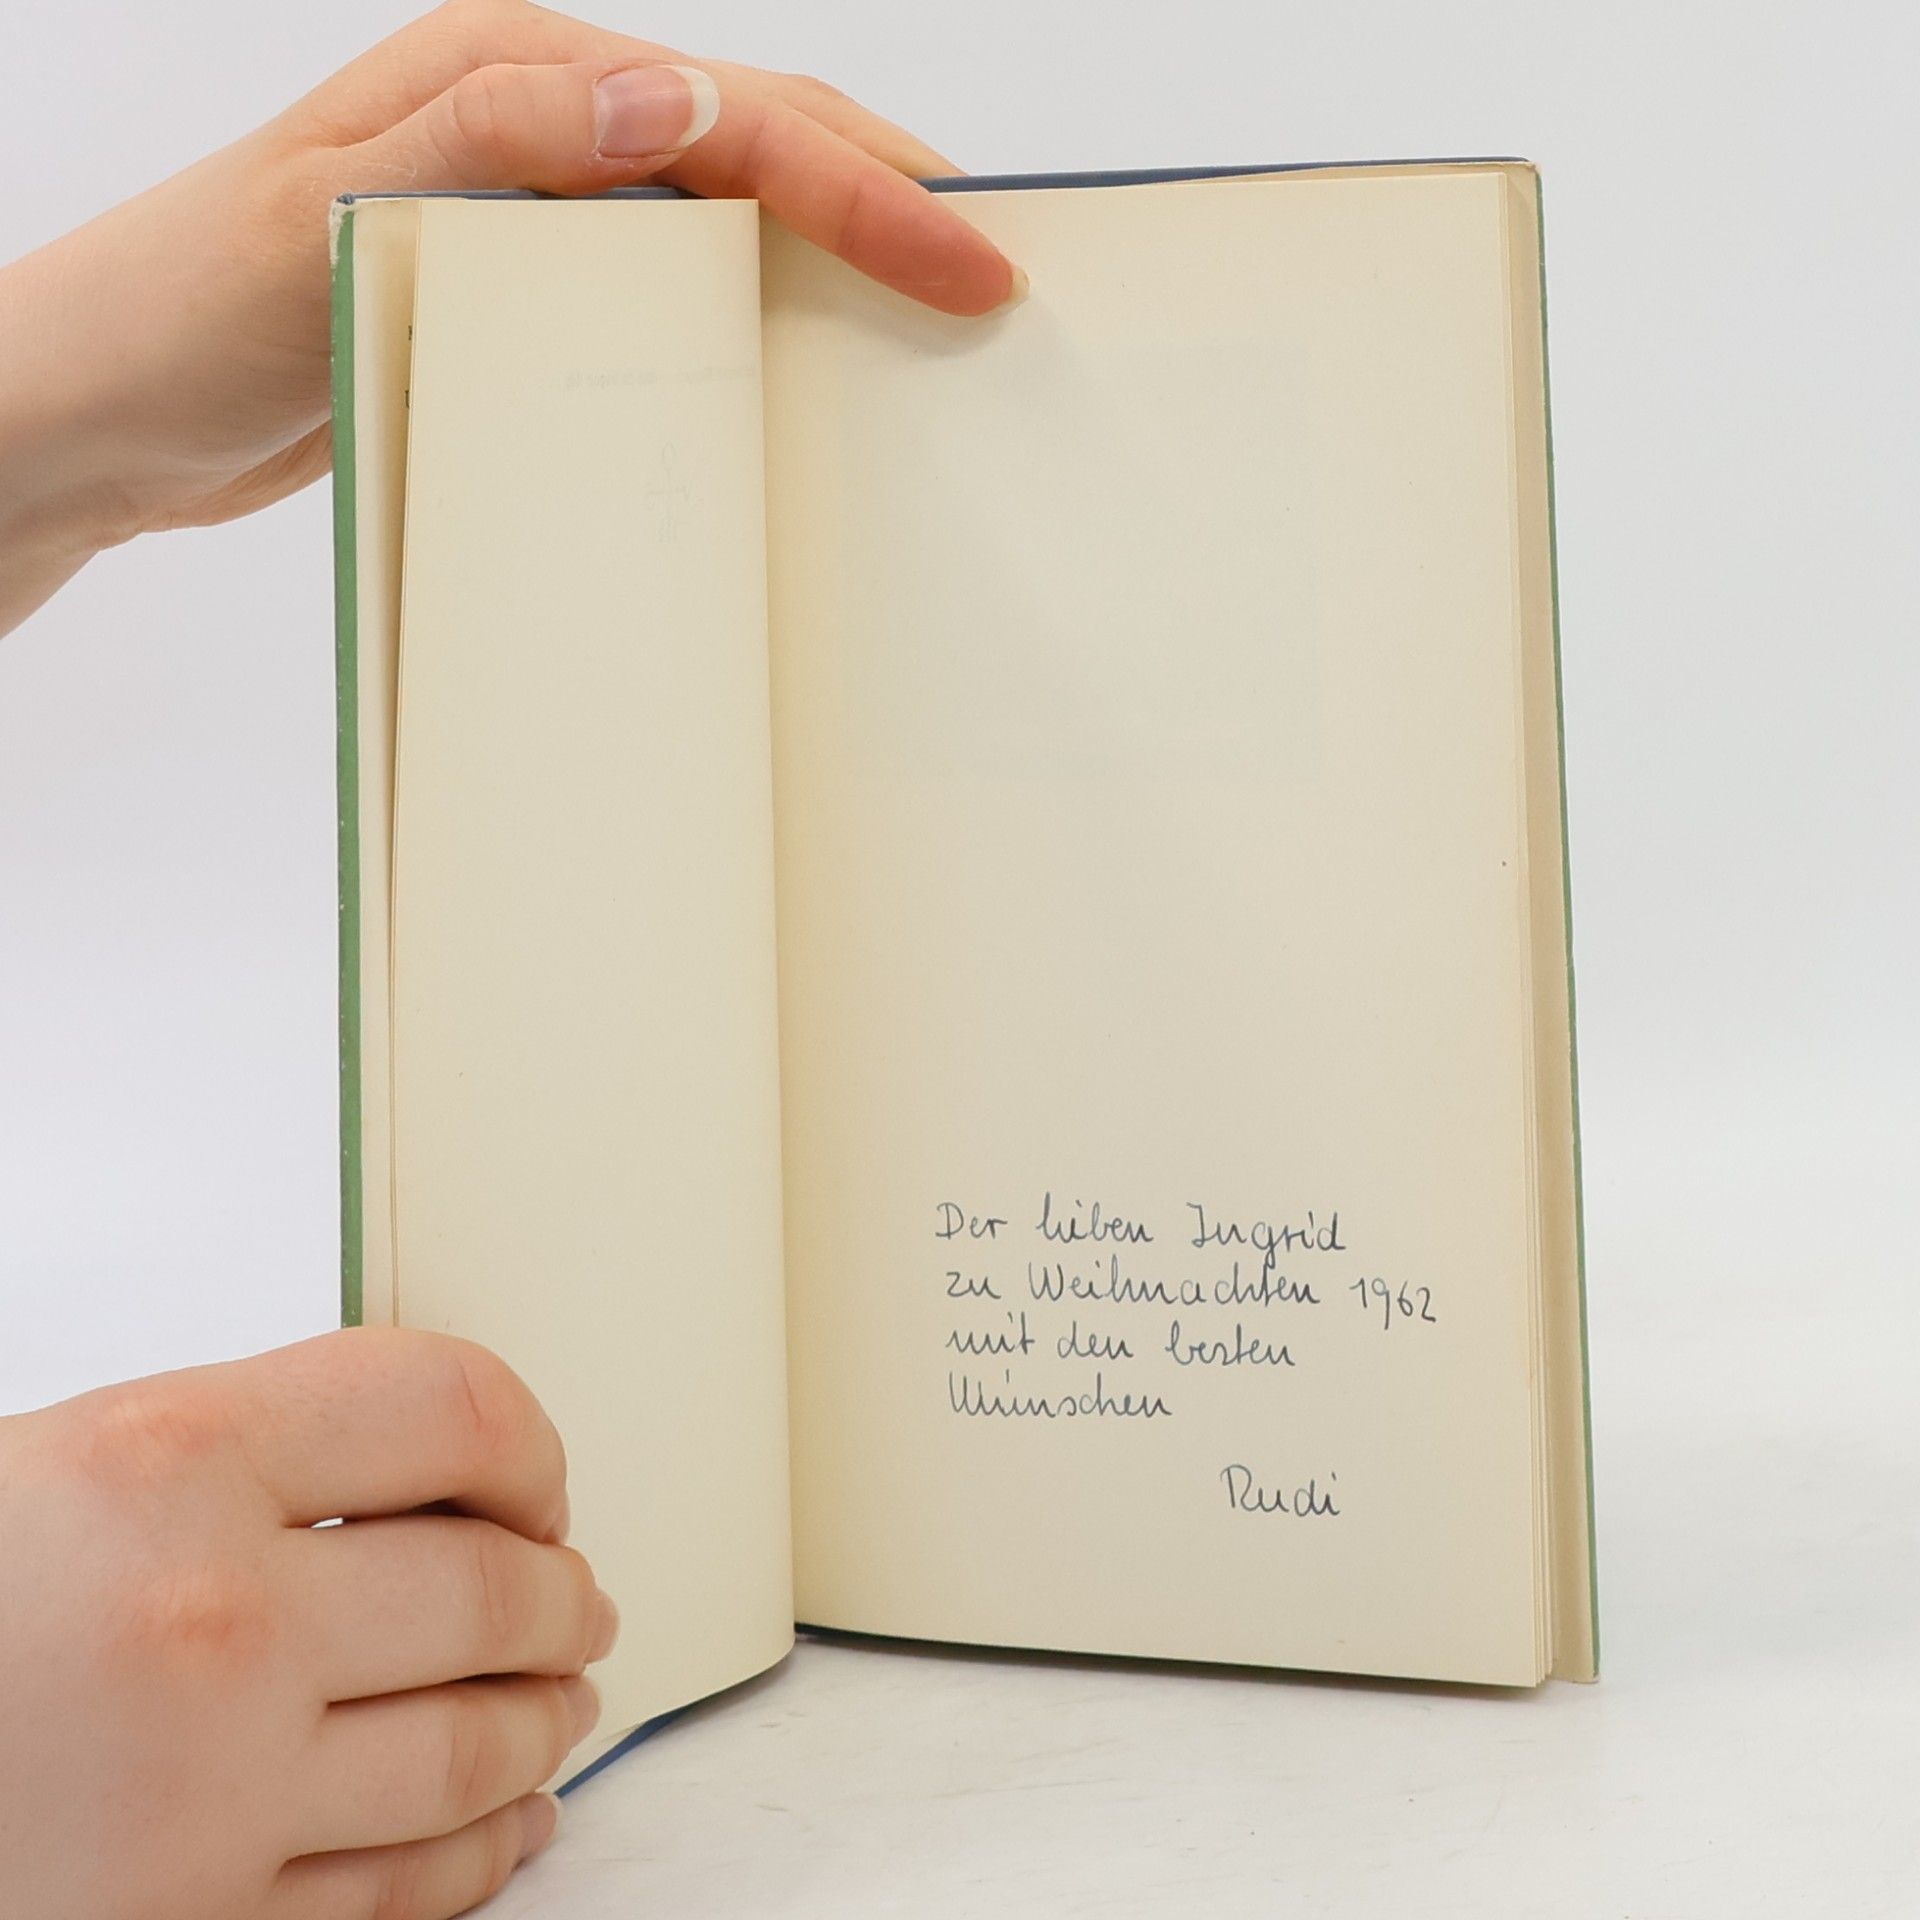 Der lieben Ingrid
zu Weihnachten 1962
mit den besten
Wünschen
Rudi